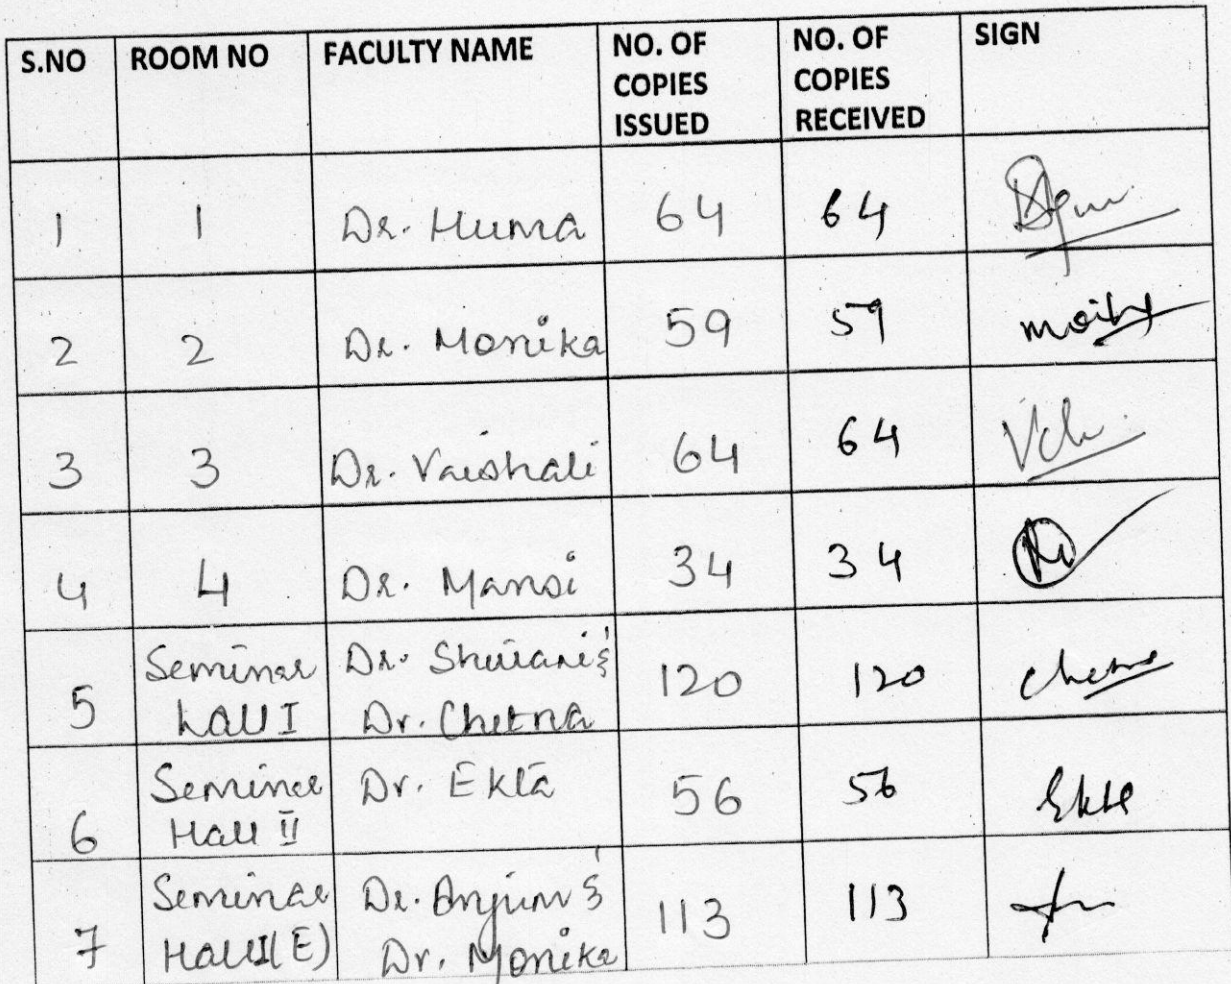 S.NO ROOM NO FACULTY NAME NO. OF COPIES ISSUED NO. OF COPIES RECEIVED SIGN
1 1 Dr. Huma 64 64
2 2 Dr. Monika 59 59
3 3 Dr. Vaishali 64 64
4 4 Dr. Mansi 34 34
5 Seminar Hall I Dr. Shivani & Dr. Chetna 120 120
6 Seminar Hall II Dr. Ekta 56 56 Ekta
7 Seminar Hall I(E) Dr. Anjum & Dr. Monika 113 113